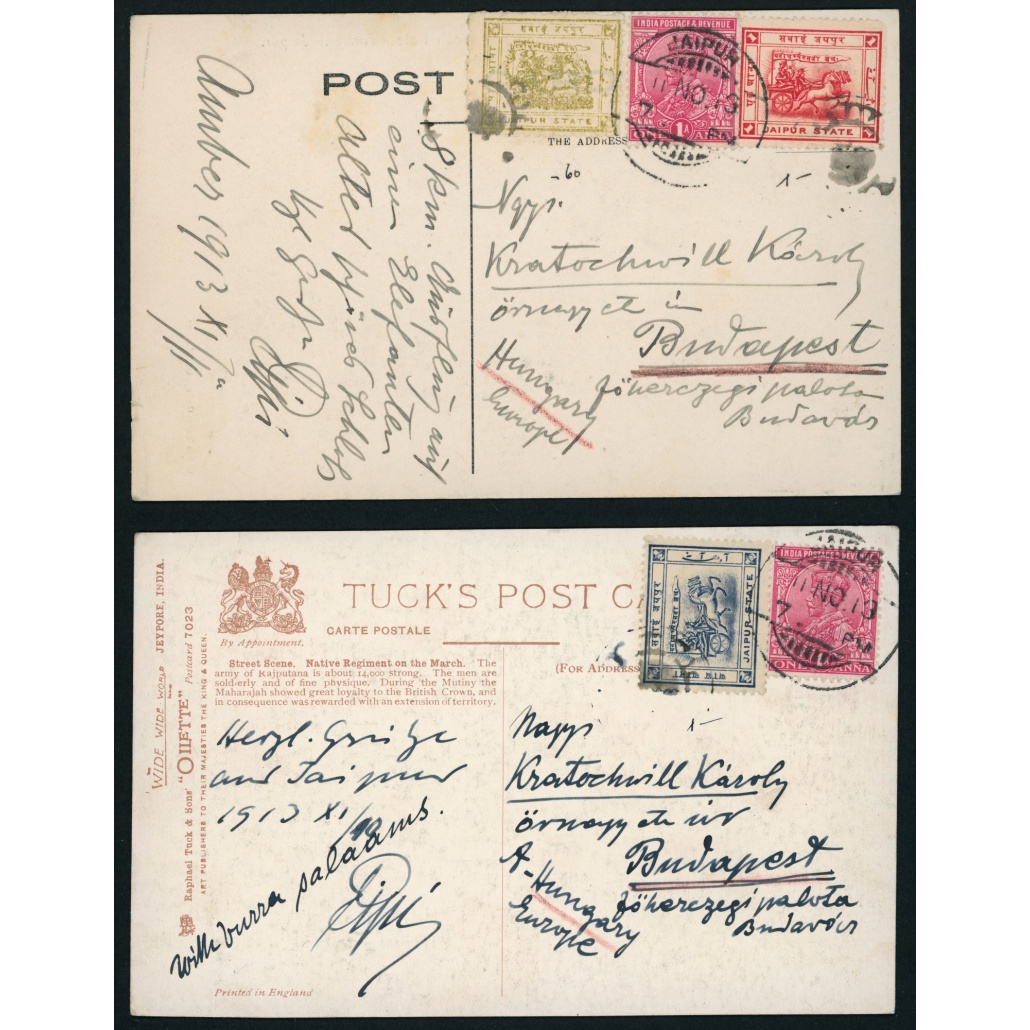 सवाई जयपुर
JAIPUR STATE
INDIA POSTAGE & REVENUE
1A
सवाई जयपुर
JAIPUR STATE
JAIPUR
11 NO. 13
7 PM
POST
THE ADDRESS
-60
1-
Amber 1913 XI/11
8 km. Ausflug auf
einem Elefanten
altes schönes Schloß
Ngys.
Kratochwill Károly
őrnagy
Budapest
főherczegi palota
Budavár
Hungary
Europe
TUCK'S POST CA
CARTE POSTALE
By Appointment.
(FOR ADDRESS
सवाई जयपुर
JAIPUR STATE
INDIA POSTAGE & REVENUE
ONE ANNA
JAIPUR
11 NO. 13
7 PM
Street Scene. Native Regiment on the March. The
army of Rajputana is about 14,000 strong. The men are
soldierly and of fine physique. During the Mutiny the
Maharajah showed great loyalty to the British Crown, and
in consequence was rewarded with an extension of territory.
WIDE WIDE WORLD JEYPORE, INDIA.
Raphael Tuck & Sons' "OILETTE" Postcard 7023
ART PUBLISHERS TO THEIR MAJESTIES THE KING & QUEEN.
Herzl. Grüße
aus Jaipur
1913 XI/10
with burra salaams.
1-
Nagys
Kratochwill Károly
őrnagy úr
Budapest
főherczegi palota
Budavár
A-Hungary
Europe
Printed in England